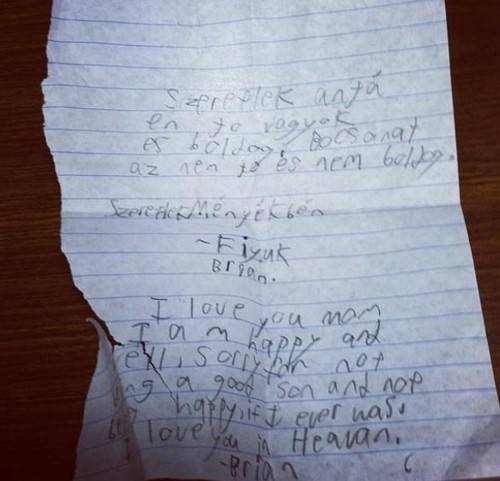 Szeretlek anyá
én jo vagyok
és boldog, Bocsanat
az nem jo és nem boldog.
Szeretlek Ményékbén
~Fiyuk
Brian.
I love you mom
I am happy and
ell, sorry for not
ing a good son and not
happy, if I ever was.
I love you in Heavan.
-Brian